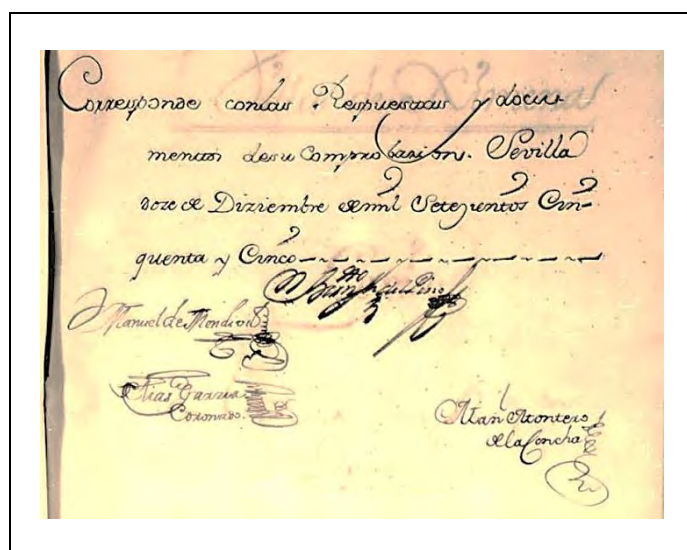 Corresponde conlas Respuestas y docu
mentos desu Comprobazion. Sevilla
doze de Diziembre de mil Setezientos Cin-
quenta y Cinco
Manuel de Mendivil
Elias Garzia
Coronado.
Montero
de la Concha